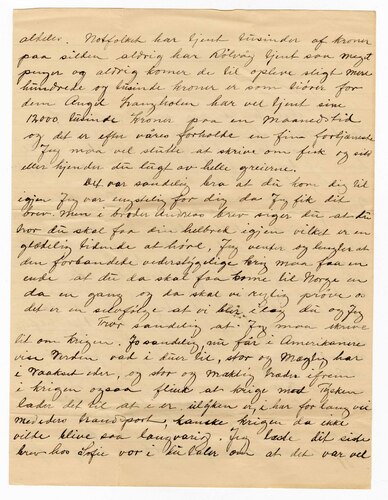 alheler. Notfolket har tjent tusinder af kroner
paa silden aldrig har Rólvåg tjent saa meget
penger og aldrig komer de til opleve sligt mere
hundrede og tusinde kroner er som tiører for
dem Angel Langholm har vel tjent sine
12000 tusinde Kroner paa en Maanedstid
og det er efter vores forholde en fin fortjeneste
Jeg maa vel slutte at skrive om fisk og sild
eller kjender du lugt av hele greierne.
Det var sandelig bra at du kom dig til
igjen Jeg var engstelig for dig da Jeg fik dit
brev. Men i broder Andreas brev siger du at du
tror du skal faa din helbrek igjen velket er en
glædelig tidende at høre. Jeg venter og lenges at
den forbandede vederstyggelige krig maa faa en
ende at du da skal faa kome til Norge en
da en gang og da skal vi rigtig prøve
det er en selvfølge at vi i lag du og Jeg
Tror sandelig at Jeg maa skrive
til om krigen. Jo sandelig nu får i Amerikanere
vise Verden vad i duer til, stor og Mægtig har
i vaakset eder, og stor og Mektig træder i frem
i krigen ogsaa flink at krige med Tysken
lader det til at i er, ulykken er, i har for lang vei
med eders Transport kanske krigen da ikke
vilde blive saa langvarig. Jeg læste dit side
brev hos Sofie vor i du taler om at det var vel